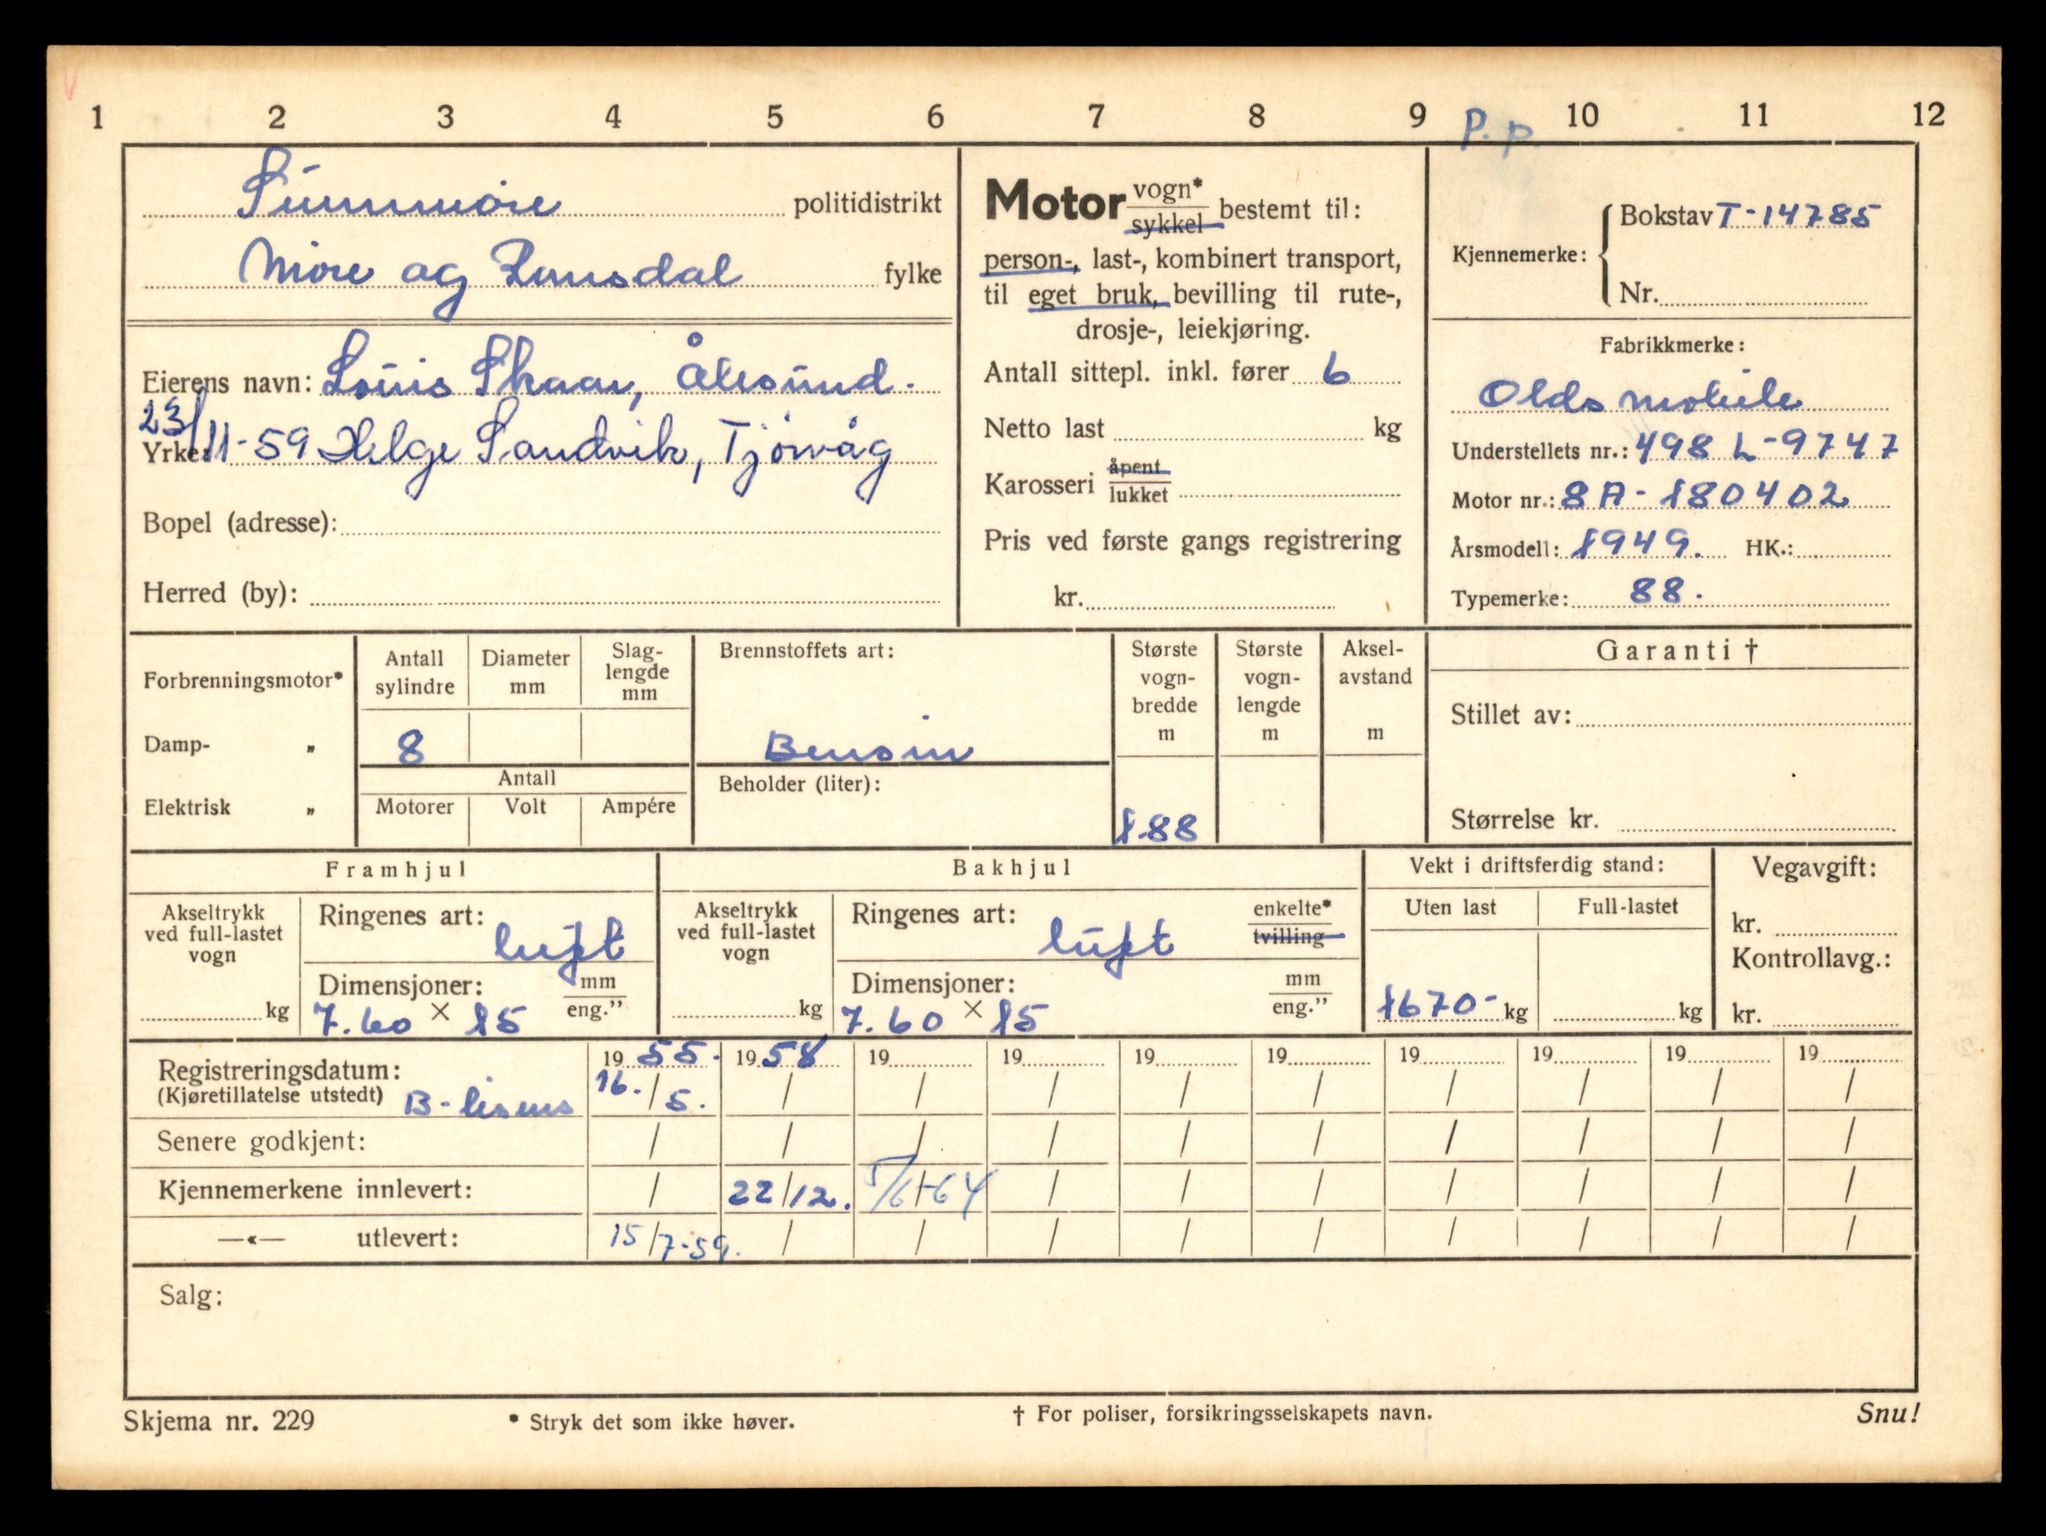 1 2 3 4 5 6 7 8 9 P. P. 10 11 12
Sunnmøre politidistrikt
Møre og Romsdal fylke
Eierens navn: Louis Skaar, Ålesund.
23/11-59 Helge Sandvik, Tjørvåg
Yrke:
Bopel (adresse):
Herred (by):
Motor vogn* / sykkel bestemt til:
person-, last-, kombinert transport,
til eget bruk, bevilling til rute-,
drosje-, leiekjøring.
Antall sittepl. inkl. fører 6
Netto last kg
Karosseri åpent / lukket
Pris ved første gangs registrering
kr.
Kjennemerke: Bokstav T-14785
Nr.
Fabrikkmerke:
Oldsmobile
Understellets nr.: 498 L-9747
Motor nr.: 8A-180402
Årsmodell: 1949. HK.:
Typemerke: 88.
Forbrenningsmotor*
Damp- „
Elektrisk „
Antall sylindre
Diameter mm
Slag-lengde mm
8
Antall
Motorer Volt Ampére
Brennstoffets art:
Bensin
Beholder (liter):
Største vogn-bredde m
1.88
Største vogn-lengde m
Aksel-avstand m
Garanti †
Stillet av:
Størrelse kr.
Framhjul
Akseltrykk ved full-lastet vogn
kg
Ringenes art: luft
Dimensjoner: mm / eng.”
7.60 × 15
Bakhjul
Akseltrykk ved full-lastet vogn
kg
Ringenes art: luft enkelte* / tvilling
Dimensjoner: mm / eng.”
7.60 × 15
Vekt i driftsferdig stand:
Uten last Full-lastet
1670- kg kg
Vegavgift:
kr.
Kontrollavg.:
kr.
Registreringsdatum: 19 55. 19 58 19 19 19 19 19 19 19 19
(Kjøretillatelse utstedt) B-lisens 16./5. / / / / / / / / /
Senere godkjent: / / / / / / / / / /
Kjennemerkene innlevert: / 22/12. 5/6-64 / / / / / / /
—«— utlevert: 15/7-59. / / / / / / / / /
Salg:
Skjema nr. 229 * Stryk det som ikke høver. † For poliser, forsikringsselskapets navn. Snu!